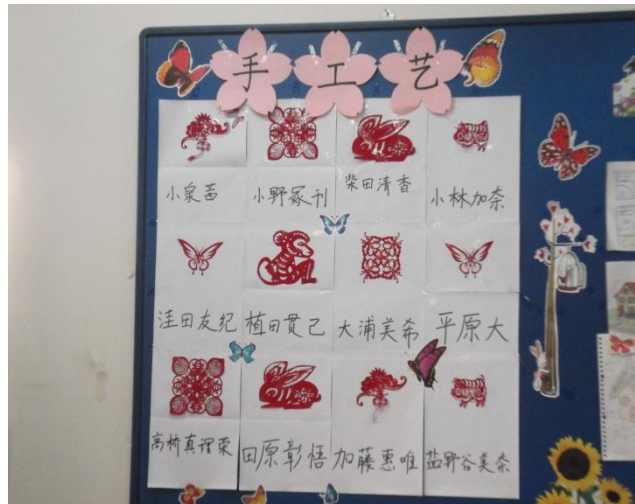 手工艺
小泉茜 小野冢刊 柴田清香 小林加奈
洼田友纪 植田贯己 大浦美希 平原大
高桥真理荣 田原彰悟 加藤惠唯 盐野谷美奈